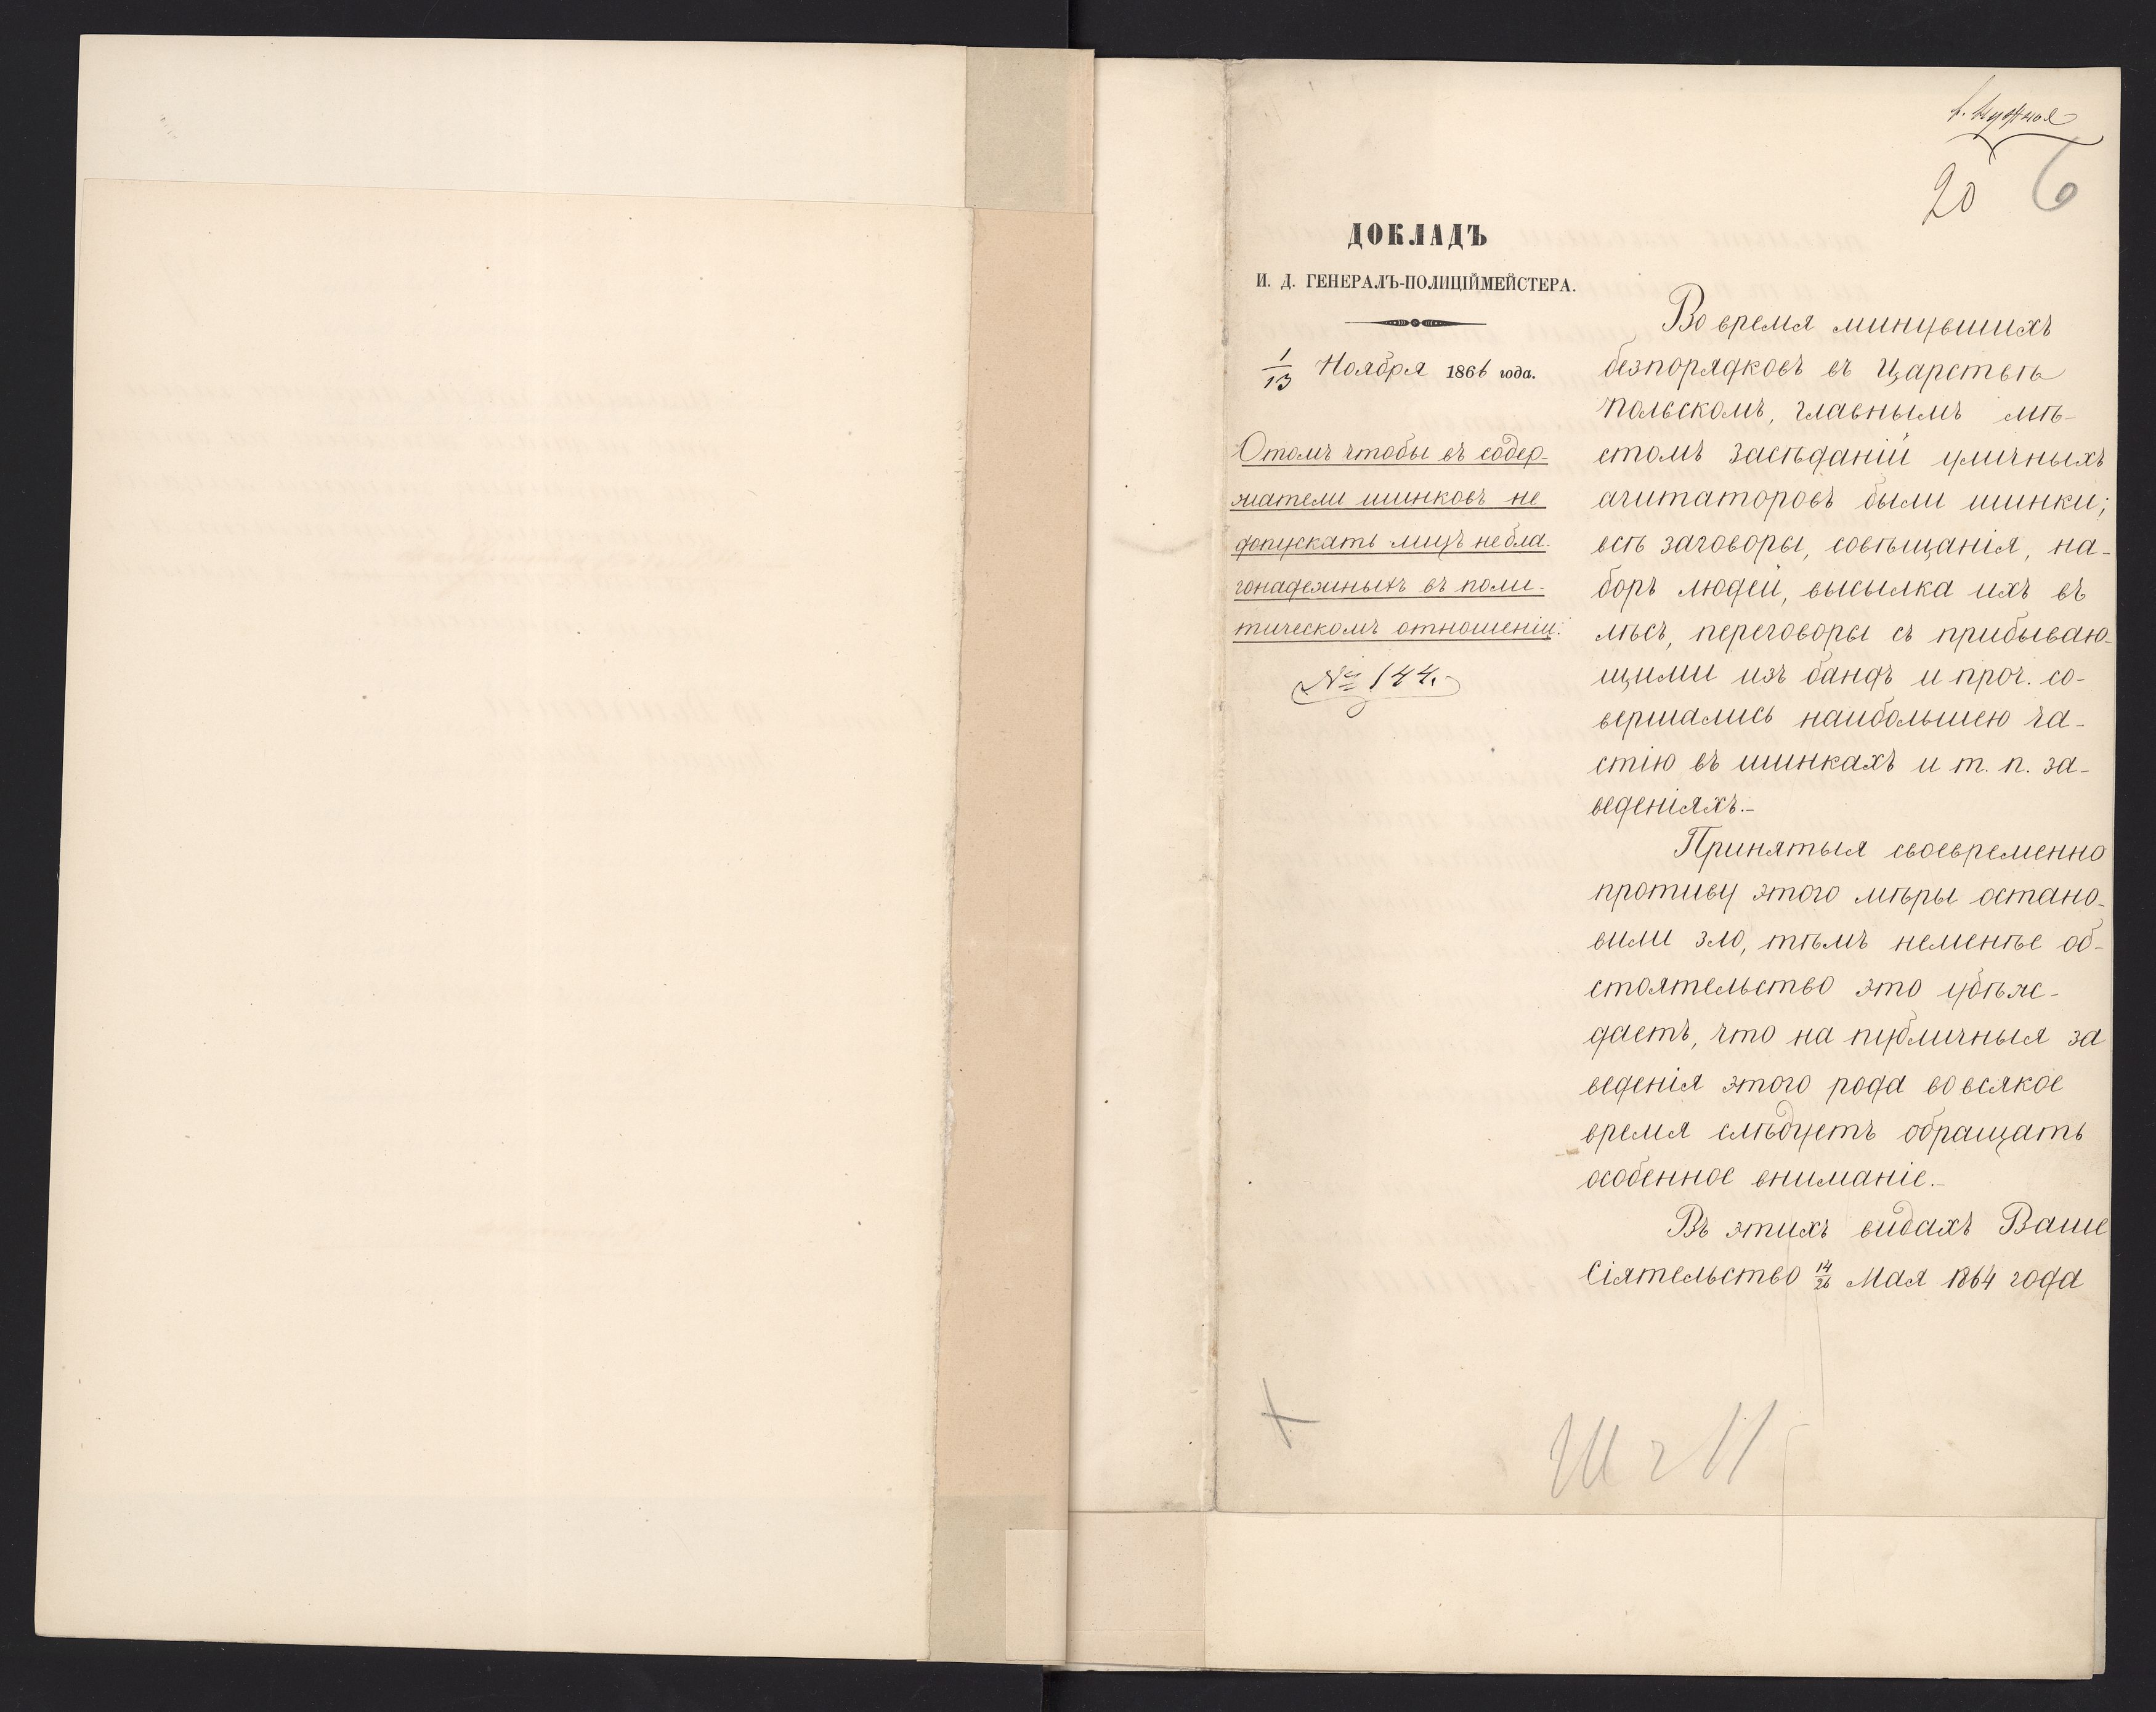 20 6
ДОКЛАДЪ
И. Д. ГЕНЕРАЛЪ-ПОЛИЦІЙМЕЙСТЕРА.
1/13 Ноября 1866 года.
О томъ чтобы въ содер-
жатели шинковъ не
допускать лицъ небла-
гонадежныхъ въ поли-
тическомъ отношеніи.
№ 144.
Во время минувшихъ
безпорядковъ въ Царствѣ
Польскомъ, главнымъ мѣ-
стомъ засѣданій уличныхъ
агитаторовъ были шинки;
всѣ заговоры, совѣщанія, на-
боръ людей, высылка ихъ въ
лѣсъ, переговоры съ прибываю-
щими изъ бандъ и проч. со-
вершались наибольшею ча-
стію въ шинкахъ и т. п. за-
веденіяхъ.-
Принятыя своевременно
противу этого мѣры остано-
вили зло, тѣмъ неменѣе об-
стоятельство это убѣж-
даетъ, что на публичныя за
веденія этого рода во всякое
время слѣдуетъ обращать
особенное вниманіе.-
Въ этихъ видахъ Ваше
Сіятельство 14/26 Мая 1864 года